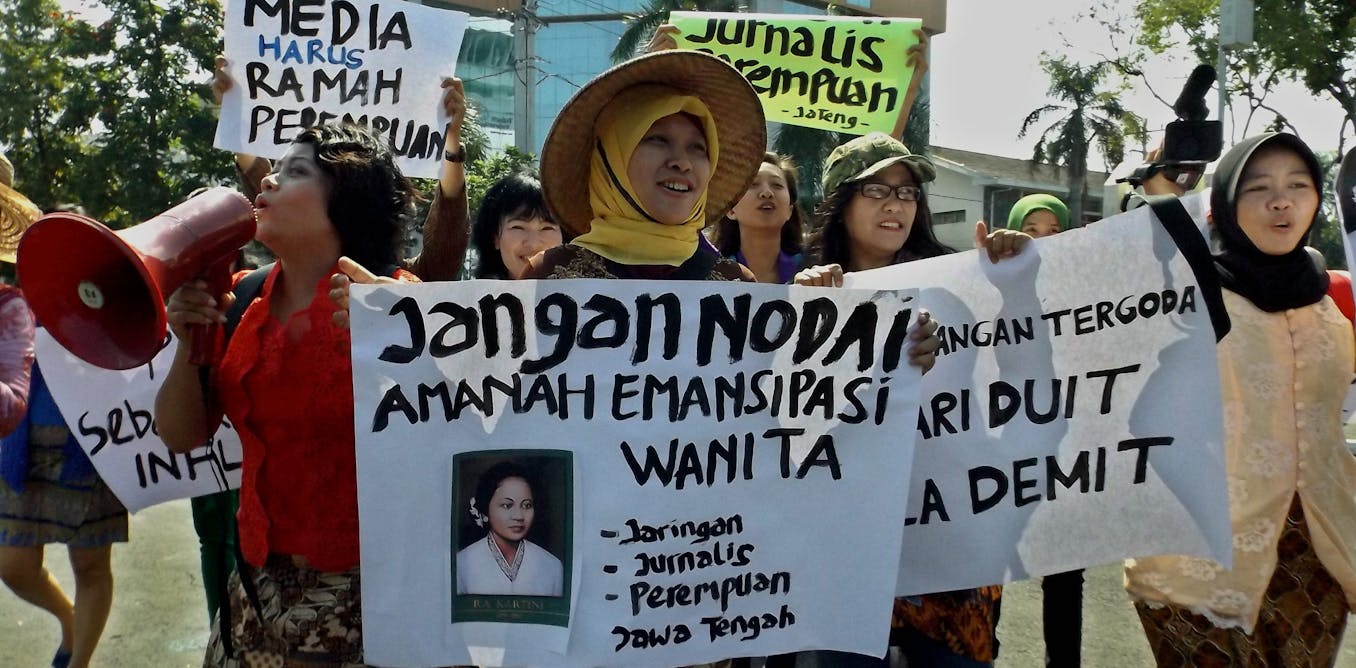 MEDIA
HARUS
RAMAH
PEREMPUAN
Jurnalis
Perempuan
- Jateng -
Jangan NODAI
AMANAH EMANSIPASI
WANITA
- Jaringan
- Jurnalis
- Perempuan
Jawa Tengah
R.A. KARTINI
ANGAN TERGODA
ARI DUIT
LA DEMIT